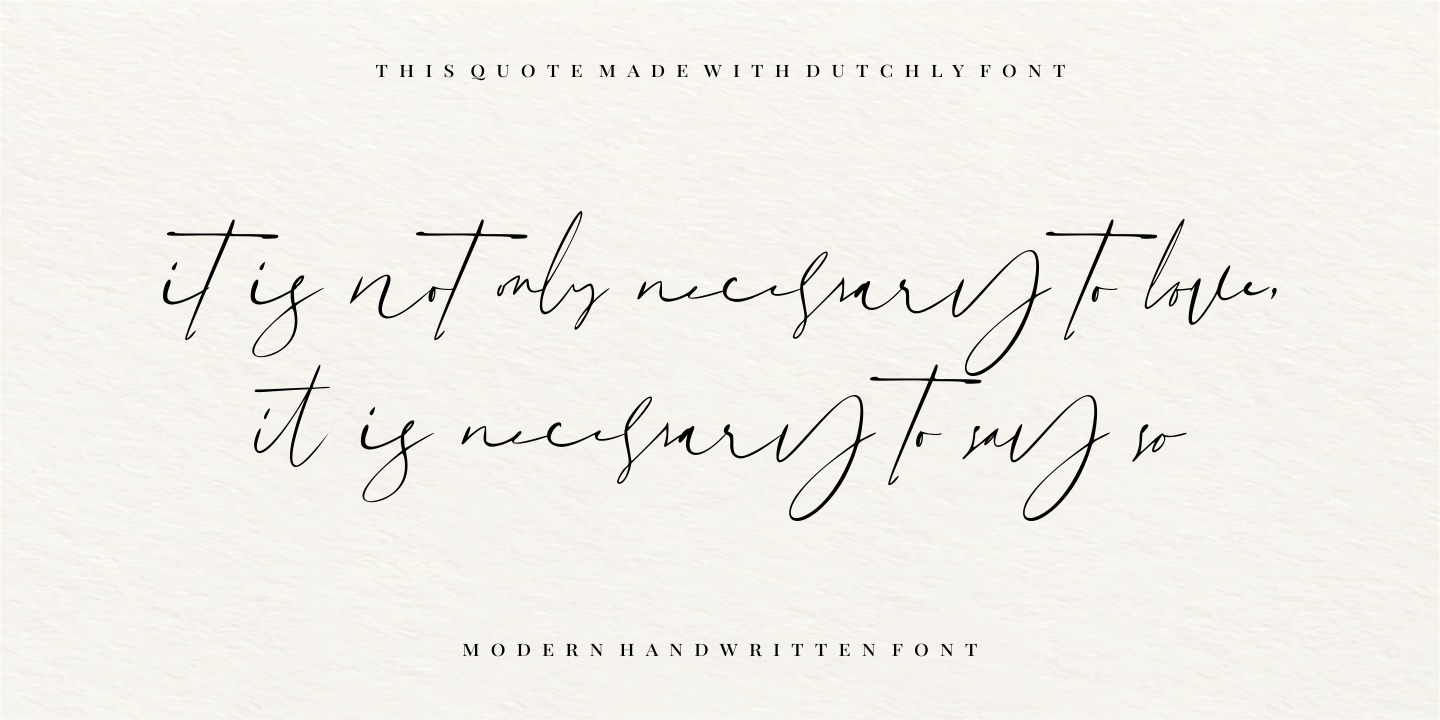 THIS QUOTE MADE WITH DUTCHLY FONT
it is not only necessary to love,
it is necessary to say so
MODERN HANDWRITTEN FONT